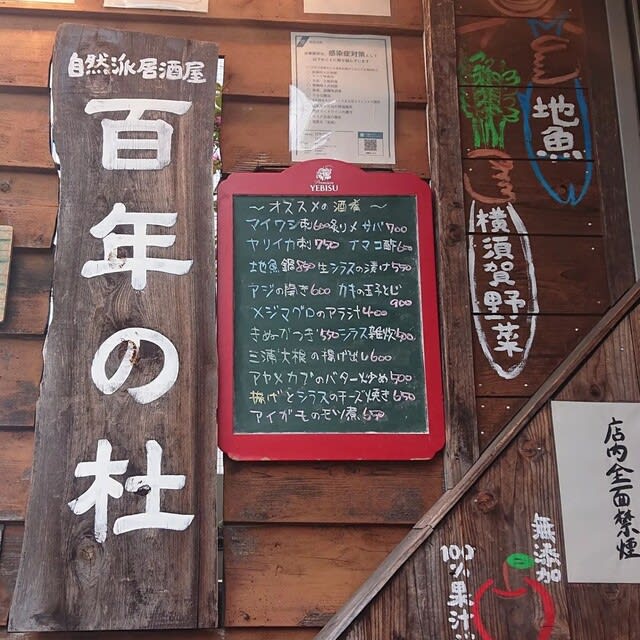 自然派居酒屋
百年の杜
感染症対策
YEBISU
～オススメの酒肴～
マイワシ刺600炙り〆サバ700
ヤリイカ刺750 ナマコ酢600
地魚 850生シラスの漬け550
アジの開き600 カキの玉子とじ
900
メジマグロのアラ汁400
きぬかつぎ550シラス雑炊500
三浦大根の揚げ出し600
アヤメカブのバター炒め500
揚げとシラスのチーズ焼き650
アイガモのモツ煮650
地魚
横須賀野菜
店内全面禁煙
無添加
100%果汁